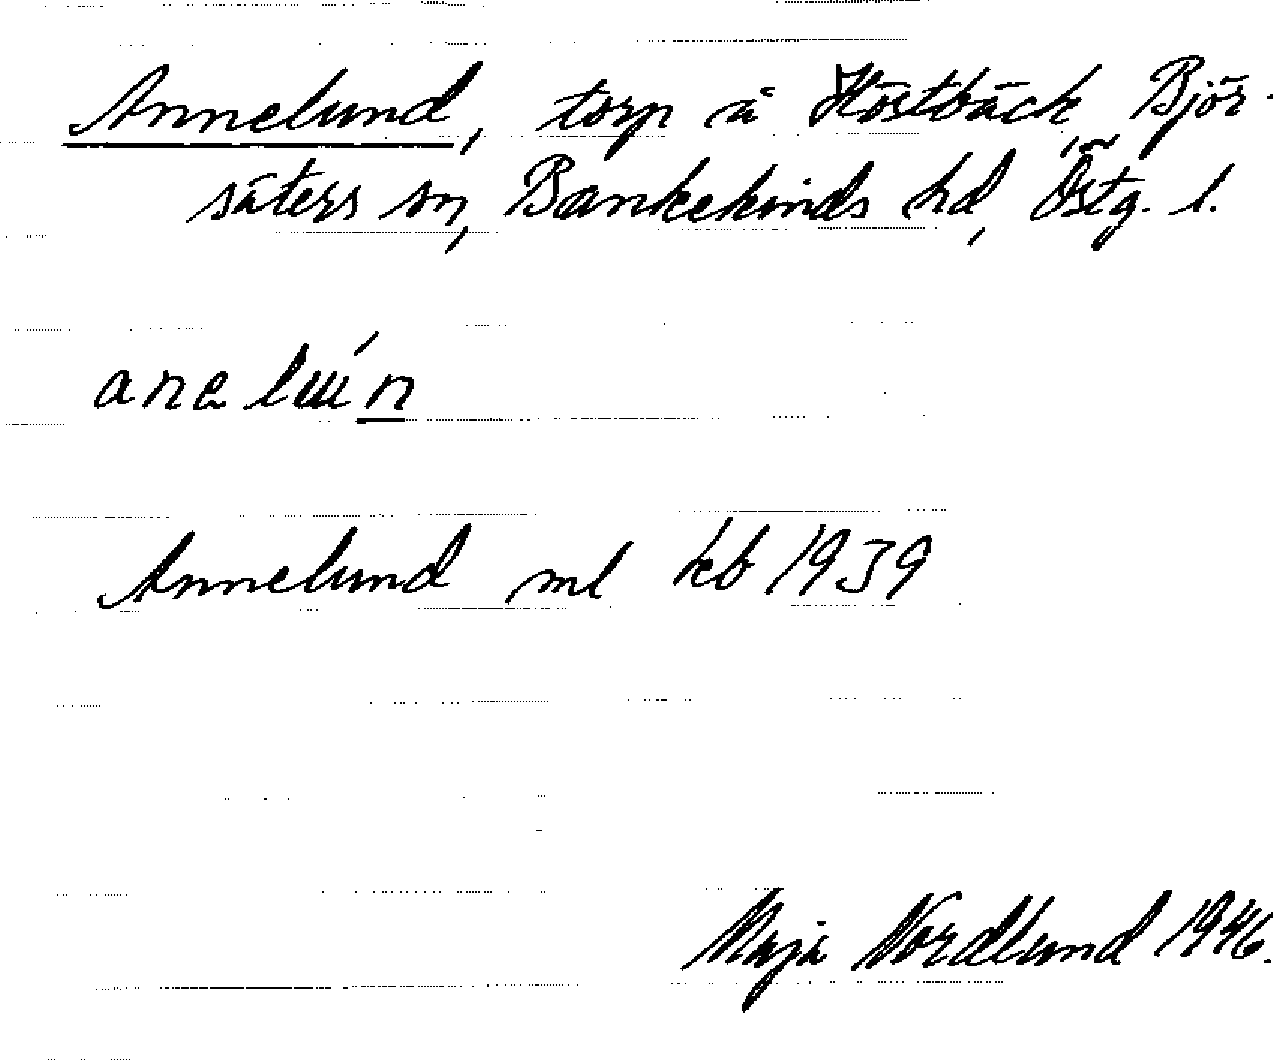 Annelund, torp å Höstbäck, Björ-
säters sn, Bankekinds hd, Östg. l.
Annelund ml kb 1939
Maja Nordlund 1946.